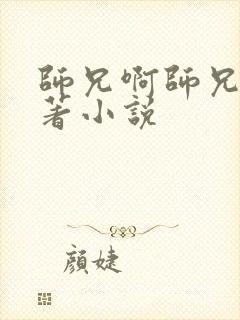 師兄啊師兄
著小說
顏婕